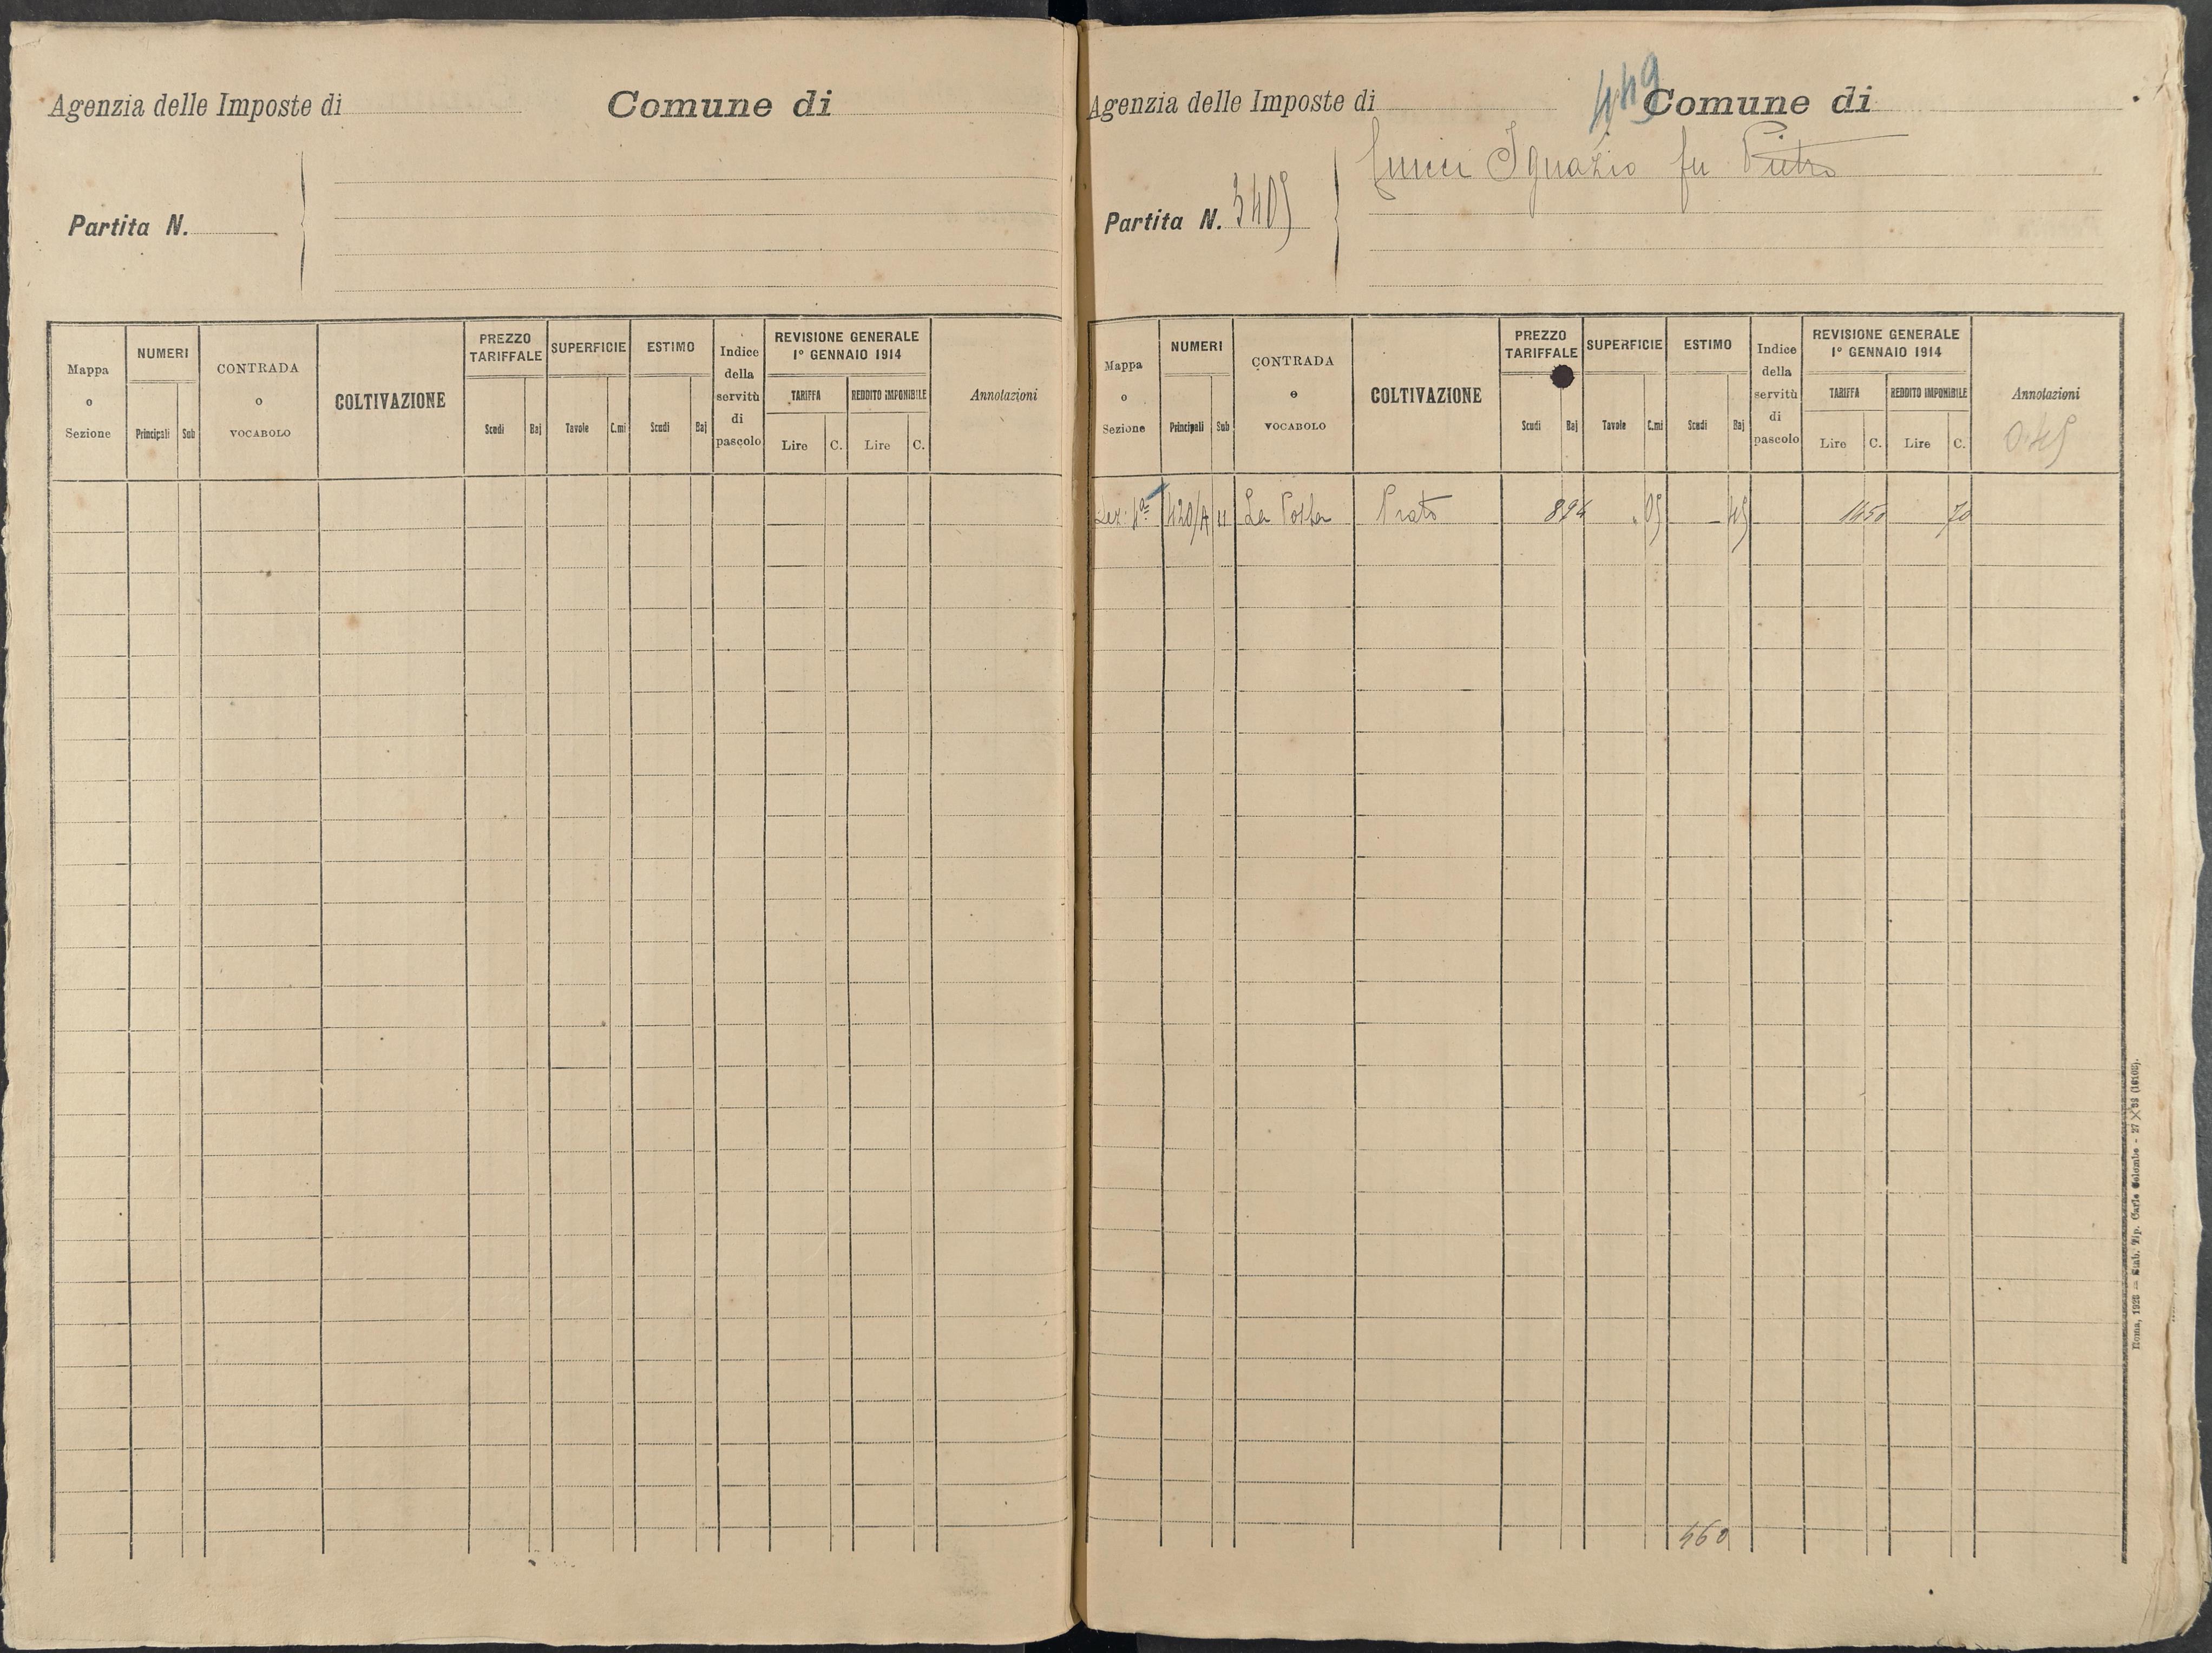 Agenzia delle Imposte di
Comune di
Partita N.
Mappa o Sezione
NUMERI
Principali Sub
CONTRADA o VOCABOLO
COLTIVAZIONE
PREZZO TARIFFALE
Scudi Baj
SUPERFICIE
Tavole C.mi
ESTIMO
Scudi Baj
Indice della servitù di pascolo
REVISIONE GENERALE
1° GENNAIO 1914
TARIFFA
Lire C.
REDDITO IMPONIBILE
Lire C.
Annotazioni
449
Agenzia delle Imposte di
Comune di
Ignazio fu Pietro
Partita N. 3405
Mappa o Sezione
NUMERI
Principali Sub
CONTRADA o VOCABOLO
COLTIVAZIONE
PREZZO TARIFFALE
Scudi Baj
SUPERFICIE
Tavole C.mi
ESTIMO
Scudi Baj
Indice della servitù di pascolo
REVISIONE GENERALE
1° GENNAIO 1914
TARIFFA
Lire C.
REDDITO IMPONIBILE
Lire C.
Annotazioni
0.45
Sez. 1ª 420/A La Posta Prato 894 05 45 1450 70
460
Roma, 1928 — Stab. Tip. Carlo Colombo - 27 X 98 (16102).